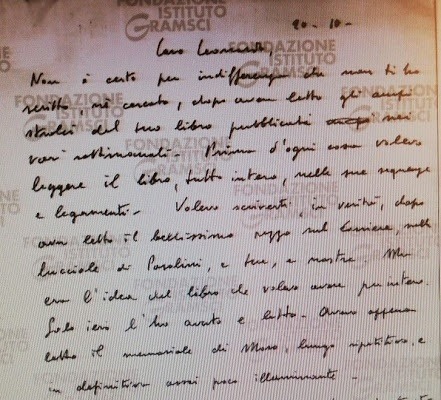 FONDAZIONE
ISTITUTO
GRAMSCI
20-10-
Caro Leonardo
Non è certo per indifferenza che non ti ho
scritto, nè cercato, dopo aver letto gli ampi
stralci del tuo libro pubblicati nei
vari settimanali - Prima d'ogni cosa volevo
leggere il libro, tutto intero, nelle sue sequenze
e legamenti - Volevo scriverti, in verità, dopo
aver letto il bellissimo pezzo sul Corriere, sulle
lucciole di Pasolini, e tue, e nostre. Ma
era l'idea del libro che volevo avere per intero.
Solo ieri l'ho avuto e letto - Avevo appena
letto il memoriale di Moro, lungo ripetitivo, e
in definitiva assai poco illuminante -